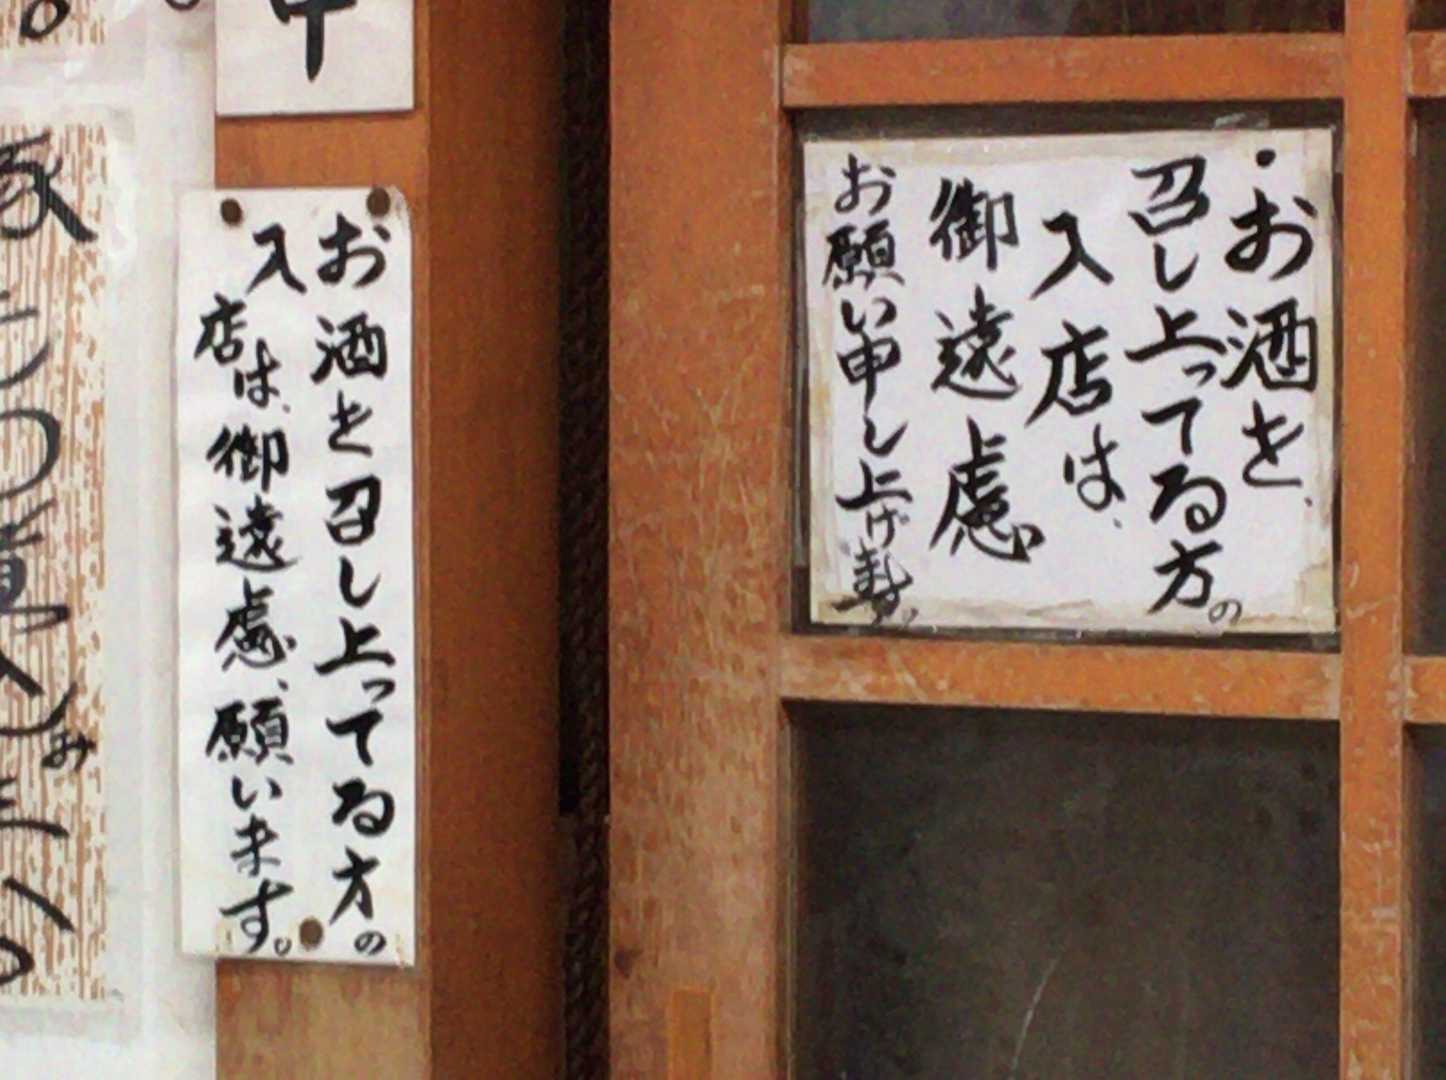 ・お酒を、
召し上ってる方の
入店は、
御遠慮
お願い申し上げます。
お酒を召し上ってる方の
入店は、御遠慮、願います。